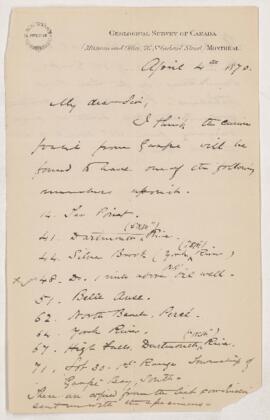 GEOLOGICAL SURVEY OF CANADA
(Museum and Office, 76, St. Gabriel Street,) MONTREAL
April 4th 1870.
My dear Sir,
I think the
from Gaspé will be
found to have one of the following
numbers upon it.
14. Tar Point.
41. Dartmouth River.
44. Silver Brook (York River)
48. Do. 1 mile above oil well.
51. Belle Anse.
62. North Beach, Percé.
64. York River
67. High Falls, Dartmouth River.
71. Lot 20. 1st Range Township of
Gaspé Bay, South.
These are copied from the list
sent with the specimens.